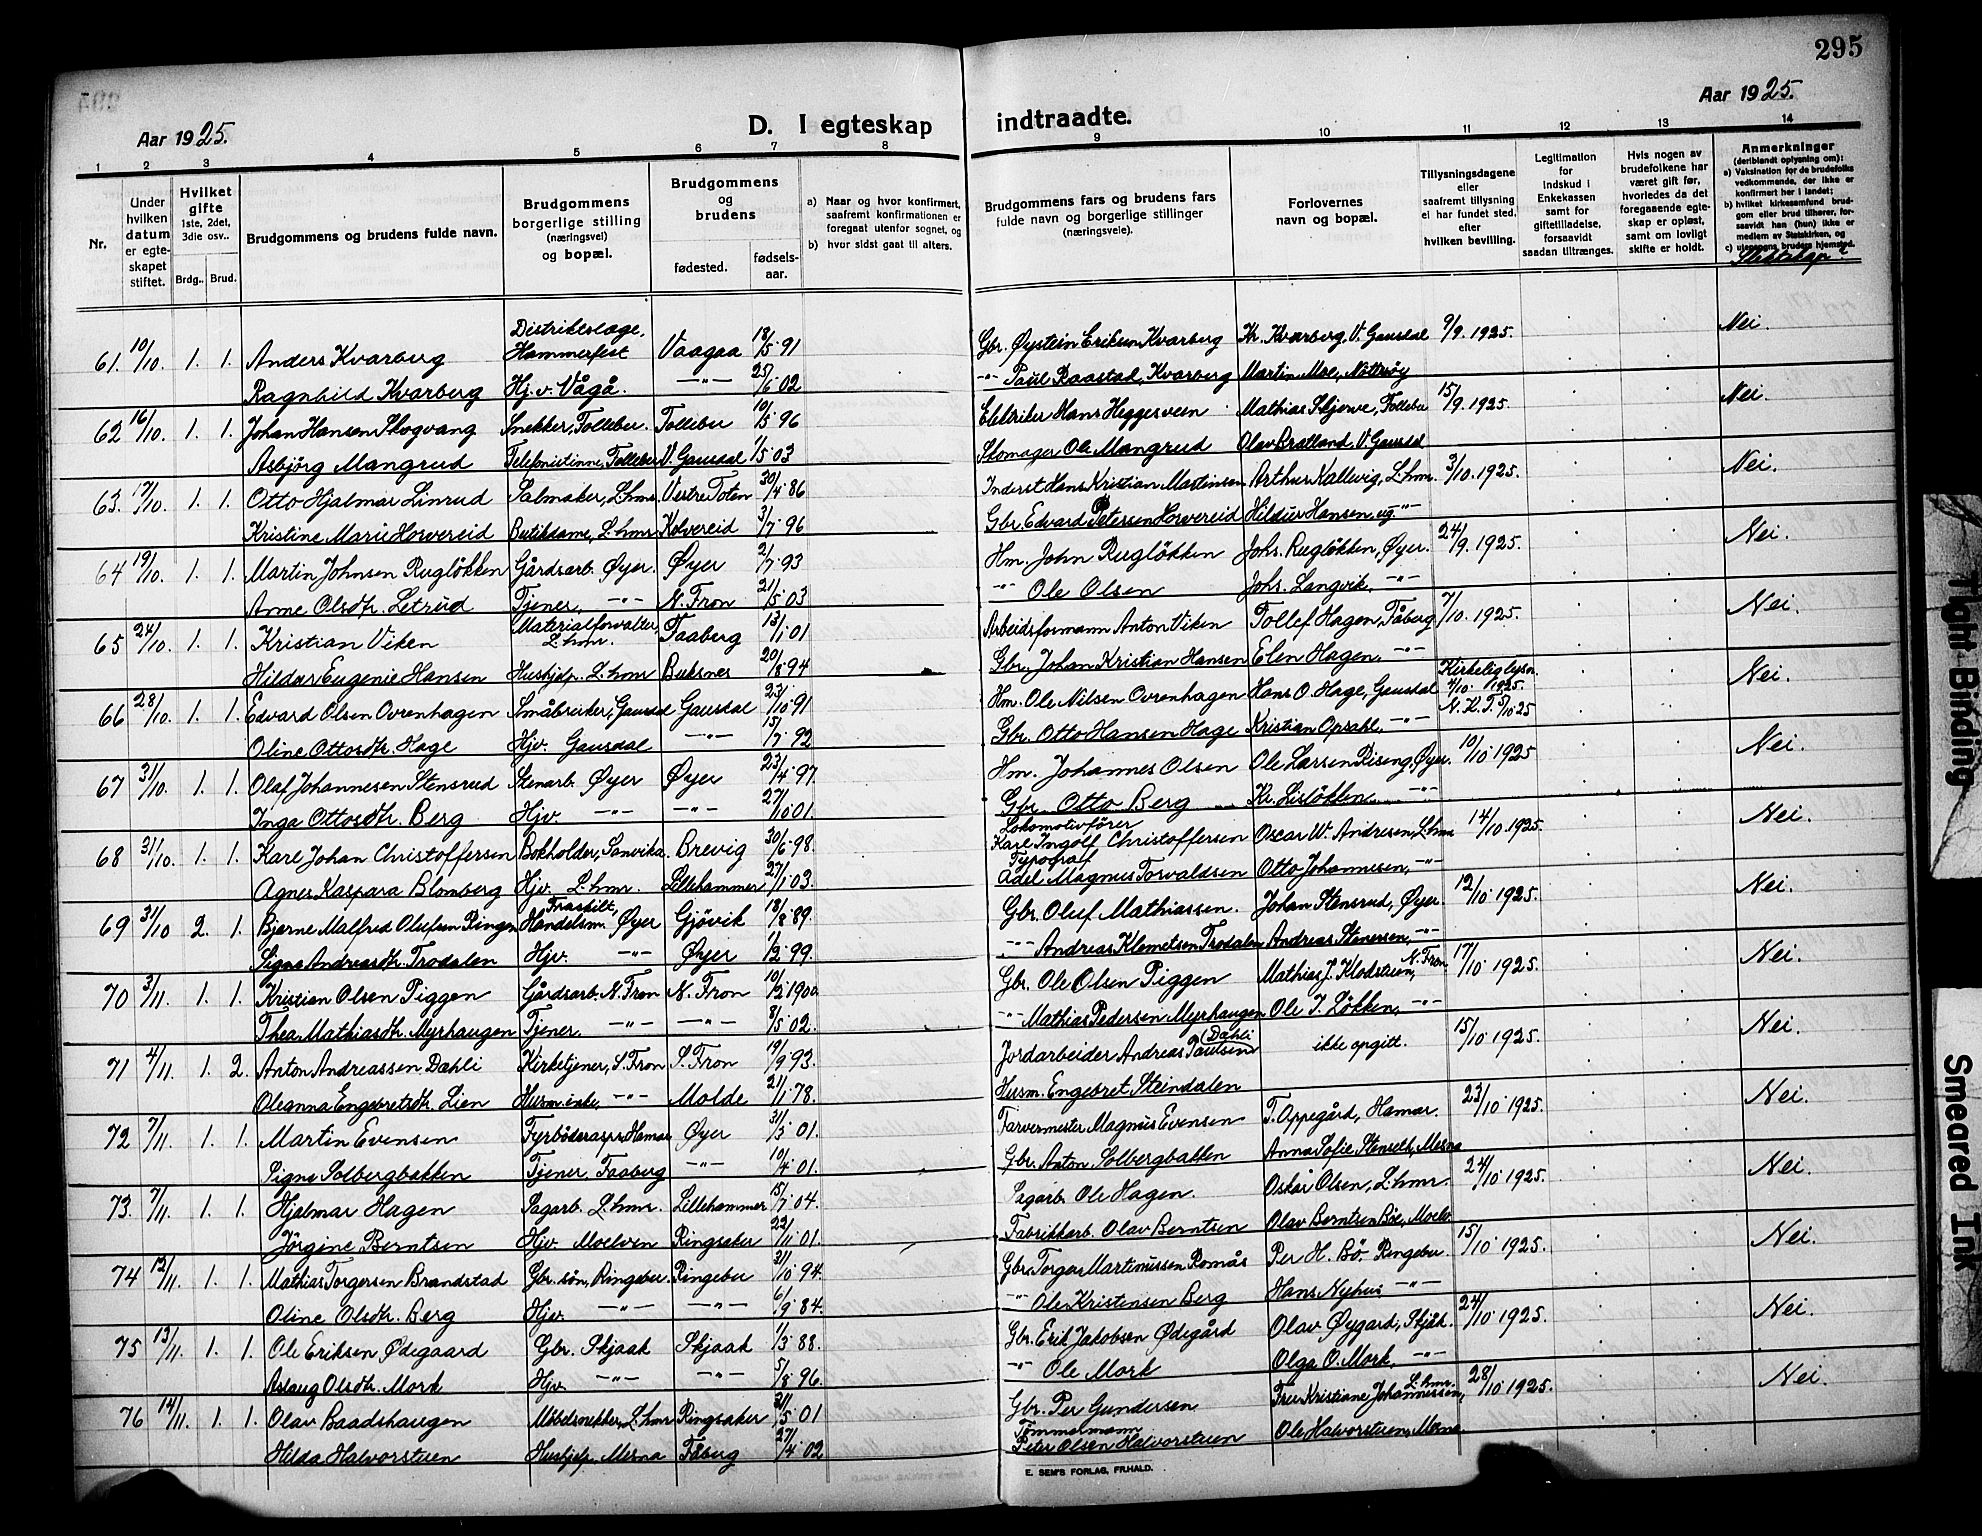 295
Aar 1925.
Aar 1925.
D. I egteskap indtraadte.
1 2 3 4 5 6 7 8 9 10 11 12 13 14
Nr.
Under hvilken datum er egteskapet stiftet.
Hvilket gifte 1ste, 2det, 3die osv..
Brdg.. Brud.
Brudgommens og brudens fulde navn.
Brudgommens borgerlige stilling (næringsvei) og bopæl.
Brudgommens og brudens
fødested. fødselsaar.
a) Naar og hvor konfirmert, saafremt konfirmationen er foregaat utenfor sognet, og
b) hvor sidst gaat til alters.
Brudgommens fars og brudens fars fulde navn og borgerlige stillinger (næringsveie).
Forlovernes navn og bopæl.
Tillysningsdagene eller saafremt tillysning ei har fundet sted, efter hvilken bevilling.
Legitimation for Indskud i Enkekassen samt for giftetilladelse, forsaavidt saadan tiltrænges.
Hvis nogen av brudefolkene har været gift før, hvorledes da det foregaaende egteskap er opløst, samt om lovligt skifte er holdt.
Anmerkninger (deriblandt oplysning om):
a) Vaksination for de brudefolks vedkommende, der ikke er konfirmert her i landet;
b) hvilket kirkesamfund brudgom eller brud tilhører, forsaavidt han (hun) ikke er medlem av Statskirken, og
c) utensogns bruders hjemsted.
Slektskap?
61. 10/10. 1. 1. Anders Kvarberg Distriktslæge, Hammerfest Vaagaa 18/5 91 Gbr. Øystein Eriksen Kvarberg Kr. Kvarberg, V. Gausdal 9/9. 1925. Nei.
Ragnhild Kvarberg Hj. v. Vågå. —"— 25/6 02 —"— Paul Raastad, Kvarberg Martin Moe, Nøtterøy
62 16/10. 1. 1. Johan Hansen Skogvang Snekker, Follebu. Follebu 10/5 96 Elektriker Hans Heggesveen Mathias Skjerve, Follebu 15/9. 1925. Nei.
Asbjörg Mangrud Telefonistinne, Follebu V. Gausdal 1/5 03 Skomager Ole Mangrud Olav Bratland. V. Gausdal
63. 17/10. 1. 1. Otto Hjalmar Linrud Salmaker, L.hmr Vestre Toten 30/4 86 Inderst Hans Kristian Martinsen Arthur Kallevig, L.hmr. 3/10. 1925. Nei.
Kristine Marie Horvereid Butikdame, L.hmr Kolvereid 3/7 96 Gbr. Edvard Petersen Horvereid Hildur Hansen, —"—
64 19/10. 1. 1. Martin Johnsen Ruglökken Gårdsarb. Øyer. Øyer 2/7 93 Hm. John Ruglökken Johs. Ruglökken, Øyer. 24/9. 1925. Nei.
Anne Olsdtr. Letrud Tjener, —"— N. Fron 21/5 03 —"— Ole Olsen Johs. Langvik, —"—
65 24/10. 1. 1. Kristian Viken Materialforvalter, L.hmr. Faaberg 13/1 01 Arbeidsformann Anton Viken Tollef Hagen, Fåberg 7/10. 1925. Nei.
Hildur Eugenie Hansen Hushjelp. L.hmr Buksnes 20/8 94 Gbr. Johan Kristian Hansen Elen Hagen, —"—
66 28/10. 1. 1. Edvard Olsen Ovrenhagen Småbruker, Gausdal Gausdal 23/10 91 Hm. Ole Nilsen Ovrenhagen Hans O. Hage, Gausdal Kirkelig lysn. 4/10 1925. N.K.T. 5/10 25 Nei.
Oline Ottosdtr. Hage Hjv. Gausdal —"— 15/7 92 Gbr. Otto Hansen Hage Kristian Opsahl, —"—
67 31/10. 1. 1. Olaf Johannesen Stensrud Stenarb. Øyer Øyer 23/4 97. Hm. Johannes Olsen Ole Larsen Riseng, Øyer. 10/10 1925 Nei.
Inga Ottosdtr. Berg Hjv. —"— —"— 27/10 01. Gbr. Otto Berg Kr. Lislökken —"—
68 31/10. 1. 1. Karl Johan Christoffersen Bokholder, Sanvika. Brevig 30/6 98. Lokomotivfører Karl Ingolf Christoffersen Oscar W. Andresen, L.hmr 14/10 1925. Nei.
Agnes Kaspara Blomberg Hjv. L.hmr. Lillehammer 27/1 03. Typograf Adel. Magnus Torvaldsen Otto Johannesen, —"—
69 31/10 2. 1. Bjarne Malfred Olufsen Ringen Fraskilt, Handelsm. Øyer Gjövik 18/8 89. Gbr. Oluf Mathiassen. Johan Stensrud, Øyer. 12/10 1925. Nei.
Signe Andreasdtr. Trodalen Hjv. —"— Øyer 1/12 99. —"— Andreas Klemetsen Trodalen Andreas Stenersen, —"—
70 3/11. 1. 1. Kristian Olsen Piggen Gårdsarb. N. Fron N. Fron 10/12 1900. Gbr. Ole Olsen Piggen Mathias J. Klodstuen, N. Fron 17/10 1925. Nei.
Thea Mathiasdtr. Myrhaugen Tjener. —"— —"— 8/5 02. —"— Mathias Pedersen Myrhaugen Ole I. Løkken, —"—
71 4/11. 1. 2. Anton Andreassen Dæhli Kirketjener, S. Fron S. Fron 19/9 93. Jordarbeider Andreas Paulsen (Dæhli ikke opgitt. 15/10 1925. Nei.
Oleanna Engebretsdtr. Lien Husm.enke, —"— Molde 21/1 78. Husm. Engebret Steindalen
72 7/11. 1. 1. Martin Evensen Fyrböderaspr. Hamar Øyer 31/3 01. Farvermester Magnus Evensen T. Oppegård, Hamar. 23/10 1925. Nei.
Signe Solbergbakken Tjener, Faaberg —"— 10/4 01. Gbr. Anton Solbergbakken Anna Sofie Stenseth, Mesna
73. 7/11. 1. 1. Hjalmar Hagen Sagarb. L.hmr. Lillehammer 15/7 04. Sagarb. Ole Hagen. Oskar Olsen, L.hmr. 24/10 1925. Nei.
Jørgine Berntsen Hjv. Moelven Ringsaker 22/11 01. Fabrikkarb. Olav Berntsen Olav Berntsen Böe, Moelv.
74 12/11. 1. 1. Mathias Torgersen Brandstad Gbr. søn, Ringebu. Ringebu 31/10 94. Gbr. Torger Martinussen Romås Per H. Bö. Ringebu 15/10 1925. Nei.
Oline Olsdtr. Berg Hjv. —"— —"— 6/9 84. —"— Ole Kristensen Berg Hans Nyhus —"—
75 13/11. 1. 1. Ole Eriksen Ødegaard Gbr. Skjaak Skjaak 1/3 88. Gbr. Erik Jakobsen Ødegård Olav Øygard, Skjåk. 24/10 1925. Nei.
Aslaug Olsdtr. Mork Hjv. —"— —"— 5/8 96. —"— Ole Mork Olga O. Mork, —"—
76 14/11. 1. 1. Olav Baadshaugen Möbelsnekker, L.hmr Ringsaker 21/5 01 Gbr. Per Gundersen Fru Kristiane Johannessen, L.hmr. 28/10 1925. Nei.
Hilda Halvorstuen Hushjelp. Mesna Fåberg 27/4 02 Tømmermann Peter Olsen Halvorstuen Ole Halvorstuen, Mesna
E. SEM'S FORLAG, FR.HALD.
Tight Binding
Smeared Ink